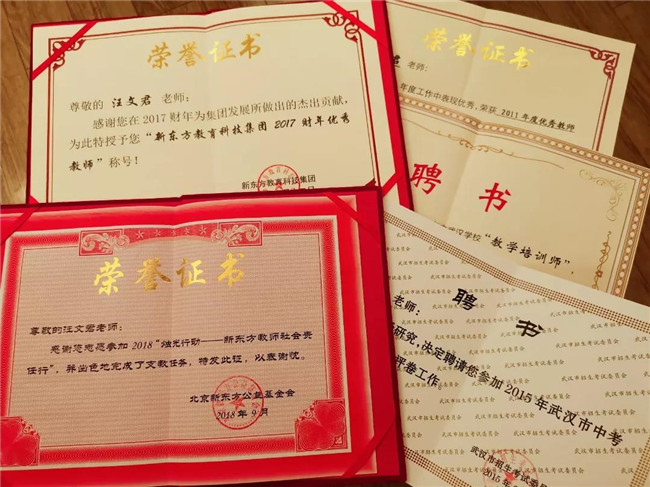 荣誉证书
尊敬的 汪文君 老师：
感谢您在2017财年为集团发展所做出的杰出贡献，
为此特授予您“新东方教育科技集团2017财年优秀
教师”称号！
新东方教育科技集团
荣誉证书
老师：
年度工作中表现优秀，荣获2011年度优秀教师
聘书
汉学校“教学培训师”，
荣誉证书
尊敬的汪文君老师：
感谢您志愿参加2018“烛光行动——新东方教师社会责
任行”，并出色地完成了支教任务，特发此证，以表谢忱。
北京新东方公益基金会
2018年9月
聘书
老师：
研究，决定聘请您参加2015年武汉市中考
评卷工作
武汉市招生考试委员
2015年
武汉市招生考试委员会